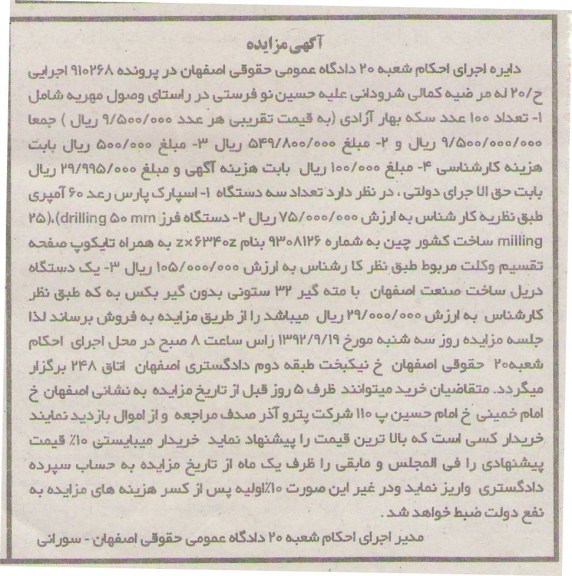 آگهی مزایده
دایره اجرای احکام شعبه ۲۰ دادگاه عمومی حقوقی اصفهان در پرونده ۹۱۰۲۶۸ اجرایی
ح/۲۰ له مر ضیه کمالی شرودانی علیه حسین نو فرستی در راستای وصول مهریه شامل
۱- تعداد ۱۰۰ عدد سکه بهار آزادی (به قیمت تقریبی هر عدد ۹/۵۰۰/۰۰۰ ریال ) جمعا
۹/۵۰۰/۰۰۰/۰۰۰ ریال و ۲- مبلغ ۵۴۹/۸۰۰/۰۰۰ ریال ۳- مبلغ ۵۰۰/۰۰۰ ریال بابت
هزینه کارشناسی ۴- مبلغ ۱۰۰/۰۰۰ ریال بابت هزینه آگهی و مبلغ ۲۹/۹۹۵/۰۰۰ ریال
بابت حق الا جرای دولتی ، در نظر دارد تعداد سه دستگاه ۱- اسپارک پارس رعد ۶۰ آمپری
طبق نظریه کار شناس به ارزش ۷۵/۰۰۰/۰۰۰ ریال ۲- دستگاه فرز drilling ۵۰ mm)،(۲۵
milling ساخت کشور چین به شماره ۹۳۰۸۱۲۶ بنام z×۶۳۴۰z به همراه تایکوپ صفحه
تقسیم وکلت مربوط طبق نظر کا رشناس به ارزش ۱۰۵/۰۰۰/۰۰۰ ریال ۳- یک دستگاه
دریل ساخت صنعت اصفهان با مته گیر ۳۲ ستونی بدون گیر بکس به که طبق نظر
کارشناس به ارزش ۲۹/۰۰۰/۰۰۰ ریال میباشد را از طریق مزایده به فروش برساند لذا
جلسه مزایده روز سه شنبه مورخ ۱۳۹۲/۹/۱۹ راس ساعت ۸ صبح در محل اجرای احکام
شعبه۲۰ حقوقی اصفهان خ نیکبخت طبقه دوم دادگستری اصفهان اتاق ۲۴۸ برگزار
میگردد. متقاضیان خرید میتوانند ظرف ۵ روز قبل از تاریخ مزایده به نشانی اصفهان خ
امام خمینی خ امام حسین پ ۱۱۰ شرکت پترو آذر صدف مراجعه و از اموال بازدید نمایند
خریدار کسی است که بالا ترین قیمت را پیشنهاد نماید خریدار میبایستی ۱۰٪ قیمت
پیشنهادی را فی المجلس و مابقی را ظرف یک ماه از تاریخ مزایده به حساب سپرده
دادگستری واریز نماید ودر غیر این صورت ۱۰٪اولیه پس از کسر هزینه های مزایده به
نفع دولت ضبط خواهد شد .
مدیر اجرای احکام شعبه ۲۰ دادگاه عمومی حقوقی اصفهان - سورانی